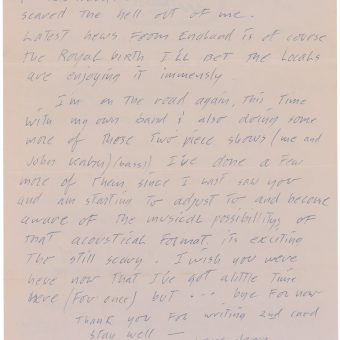 scared the hell out of me.
Latest news from England is of course
the Royal birth I'll bet the Locals
are enjoying it immensly.
I'm on the road again, this time
with my own band & also doing some
more of those two piece shows (me and
John Kahn)(bass) I've done a few
more of them since I last saw you
and am starting to adjust to and become
aware of the musical possibilitys of
that acoustical format. it's exciting
tho still scary. I wish you were
here now that I've got a little time
here (for once) but ... bye for now
Thank you for writing 2nd card
stay well —